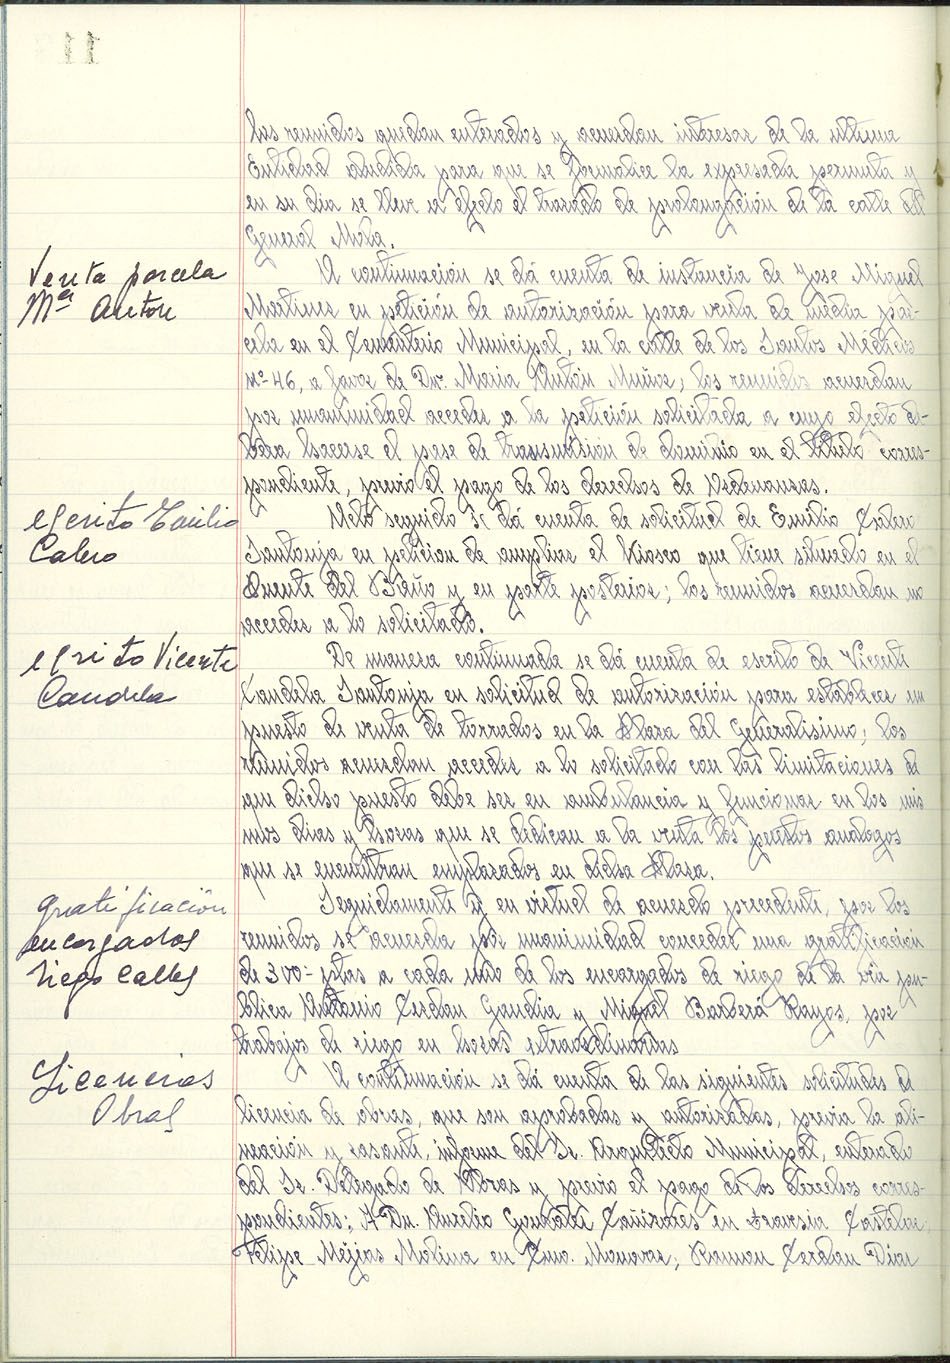 los reunidos quedan enterados y acuerdan interesar de la ultima
Entidad aludida para que se formalice la expresada permuta y
en su dia se lleve a efecto el trazado de prolongación de la calle del
General Mola.
Venta parcela
Mª Anton
A continuación se dá cuenta de instancia de Jose Miguel
Martinez en petición de autorización para venta de media par-
cela en el Cementerio Municipal, en la calle de los Santos Médicos
nº 46, a favor de Dª. Maria Antón Muñoz; los reunidos acuerdan
por unanimidad acceder a la petición solicitada a cuyo efecto de-
bera hacerse el pase de transmisión de dominio en el titulo corres-
pondiente, previo el pago de los derechos de Ordenanzas.
escrito Emilio
Calero
Acto seguido se dá cuenta de solicitud de Emilio Calero
Santonja en peticion de ampliar el Kiosco que tiene situado en el
Puente del Baño y en parte posterior; los reunidos acuerdan no
acceder a lo solicitado.
escrito Vicente
Candela
De manera continuada se dá cuenta de escrito de Vicente
Candela Santonja en solicitud de autorización para establecer un
puesto de venta de torrados en la Plaza del Generalisimo; los
reunidos acuerdan acceder a lo solicitado con las limitaciones de
que dicho puesto debe ser en ambulancia y funcionar en los mis
mos dias y horas que se dedican a la venta los puestos analogos
que se encuentran emplazados en dicha Plaza.
gratificación
encargados
riego calles
Seguidamente y en virtud de acuerdo precedente, por los
reunidos se acuerda por unanimidad conceder una gratificación
de 300- ptas a cada uno de los encargados de riego de la via pu-
blica Antonio Cerdan Gandia y Miguel Barbera Rayos, por
trabajos de riego en horas extraordinarias
Licencias
Obras
A continuación se dá cuenta de las siguientes solicitudes de
licencia de obras, que son aprobadas y autorizadas, previa la ali-
neación y rasante, informe del Sr. Arquitecto Municipal, enterado
del Sr. Delegado de Obras y previo el pago de los derechos corres-
pondientes: A Dn. Aurelio Gonzalez Cañizares en travesia Castelar;
Felipe Mejias Molina en Cmo. Monovar; Ramon Cerdan Diaz